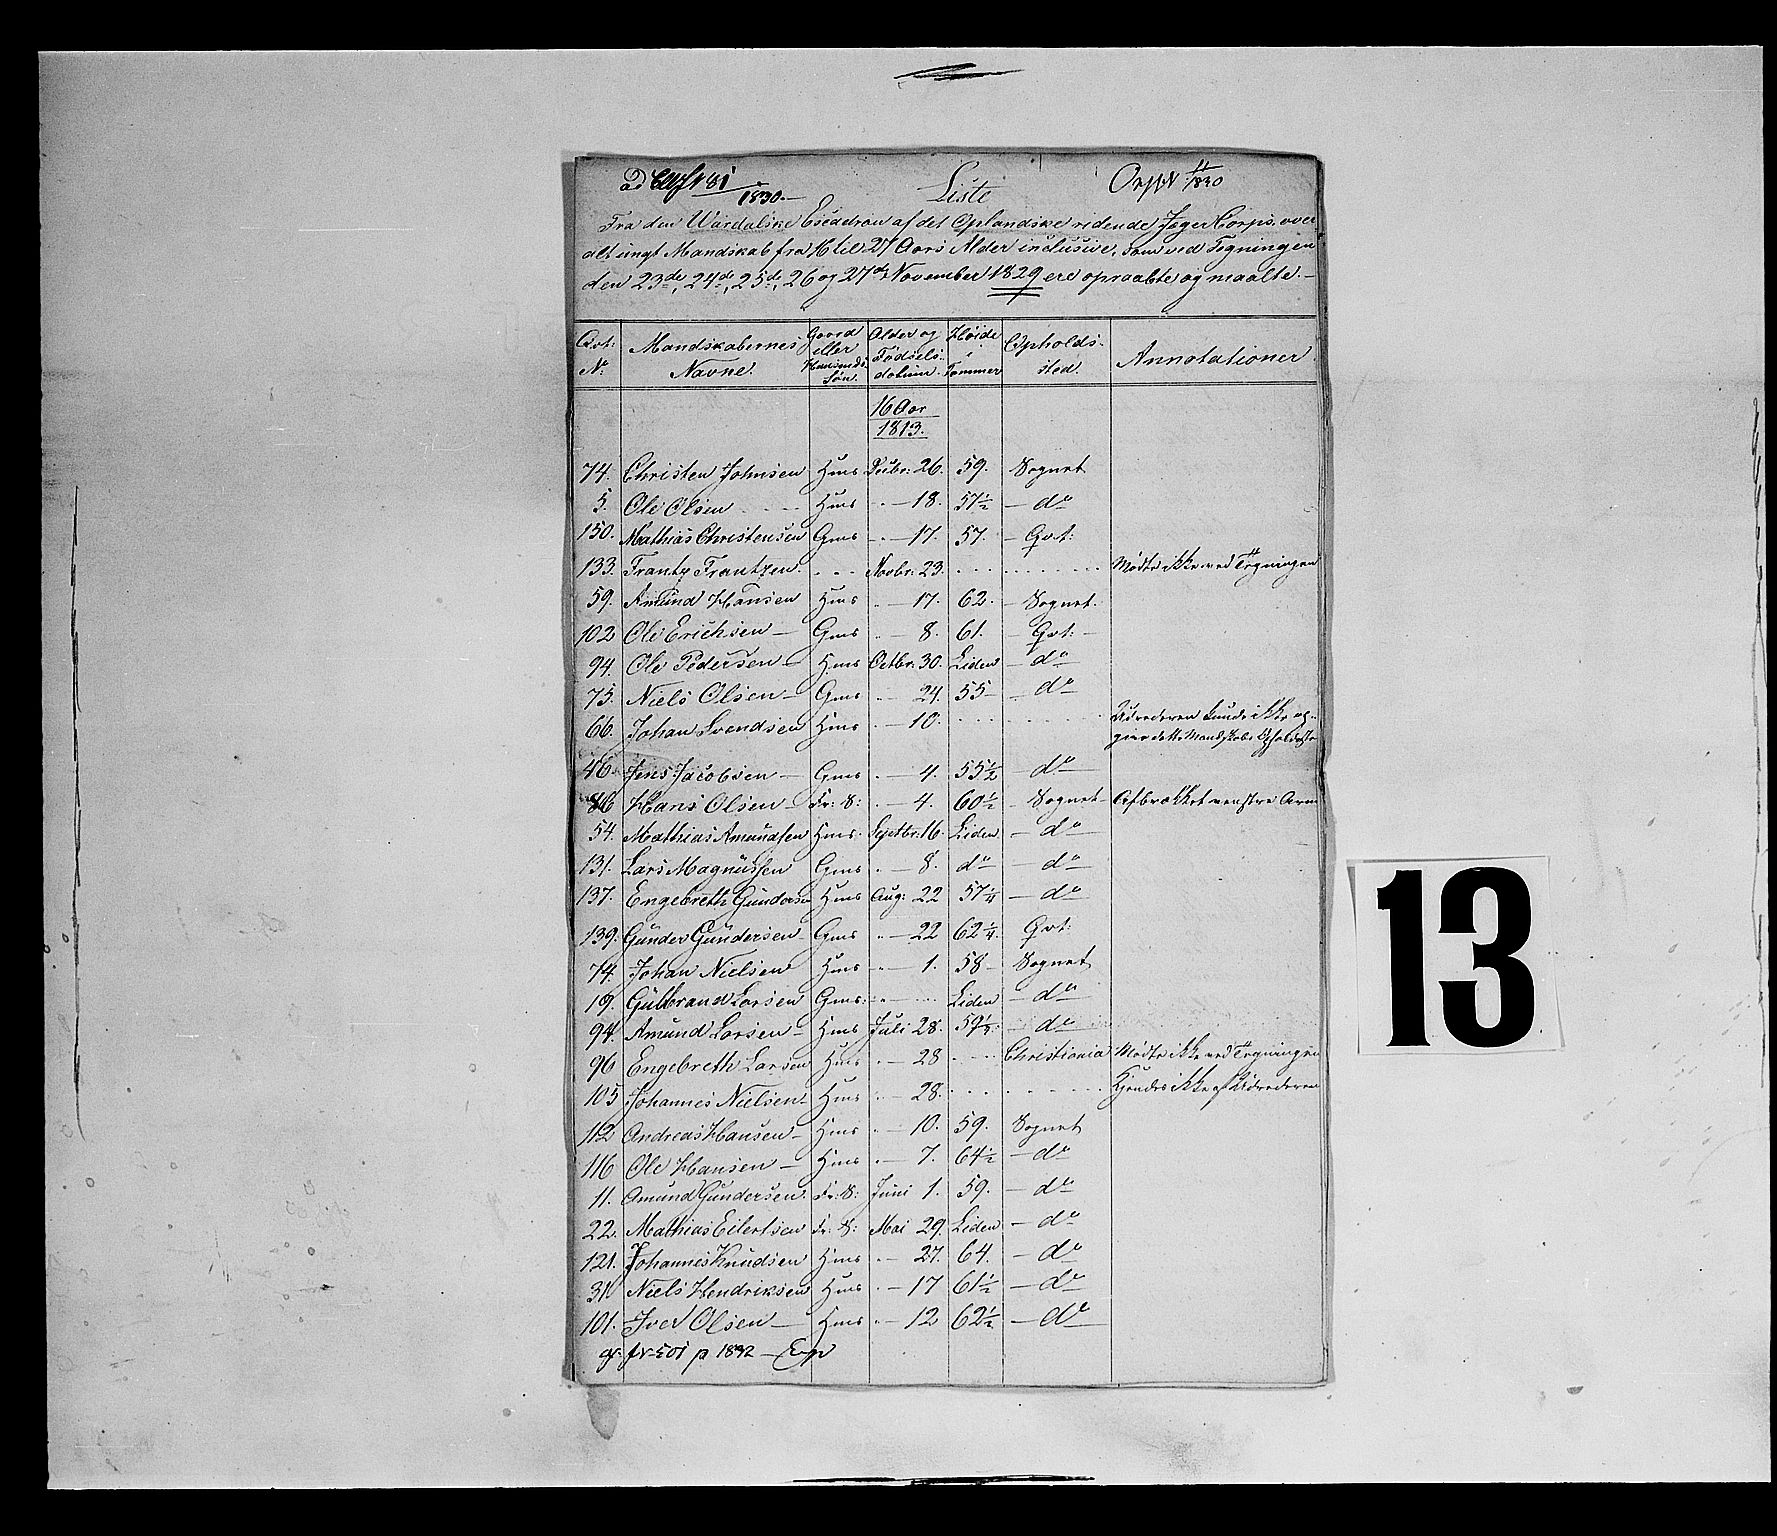 1830.
Liste
Fra den Wardalske Escadron af det Oplandske ridende Jæger Corps, over
alt ungt Mandskab fra 16 til 27 Aars Alder inclusive, som ved Tegningen
den 23de, 24de, 25de, 26 og 27de November 1829 ere opraabte og maalte.-
Qvt: No. Mandskabernes Navne. Gaard eller Huusmds: Søn. Alder og Fødsels: datum. Høide i Tommer Opholds: sted. Annotationer
16 Aar
1813.
74. Christen Johnsen Hms Decbr: 26. 59. Sognet
5. Ole Olsen Hms " - 18. 57½ - do
150. Mathias Christensen Gms " - 17. 57. - Qvt:
133. Frantz Frantzen. Novbr: 23. Mødte ikke ved Tegningen
59. Amund Hansen Hms " - 17. 62. - Sognet.
102 Ole Erichsen - Gms " - 8. 61. - Qvt: -
94. Ole Pedersen - Hms Octbr: 30. Liden - do
75. Niels Olsen - Gms " - 24. 55 - do
66. Johan Svendsen Hms " - 10. Udrederen kunde ikke op-
give dette Mandskabs
46. Jens Jacobsen - Gms " - 4. 55½ - do
86 Hans Olsen - Fr: S: " - 4. 60½ - Sognet - Afbrækket venstre Arm
54. Mathias Amundsen Hms: Septbr: 16. Liden - do
131. Lars Magnussen Gms " - 8. do - do
137. Engebreth Gundersen Hms Aug: 22 57¼ - do
139. Gunder Gundersen - Gms " - 22 62¼ Qvt:
74. Johan Nielsen Hms " - 1. 58 - Sognet
19. Gulbrand Larsen Gms: " - Liden - do
94. Amund Larsen - Hms Juli 28. 59½ - do
96 Engebreth Larsen Hms " - 28 Christiania Mødte ikke ved Tegningen
105 Johannes Nielsen - Hms " - 28. Kjendes ikke af Udrederen
112 Andreas Hansen - Hms " - 10. 59. Sognet
116 Ole Hansen - Hms " - 7. 64½ - do
11. Amund Gundersen Fr: S: Juni 1. 59. - do
22. Mathias Eilertsen Fr: S: Mai 29. Liden - do
121. Johannes Knudsen Hms " - 27. 64. - do
31. Niels Hendriksen Hms " - 17 61½ - do
101. Iver Olsen - Hms " - 12 62½ - do
13